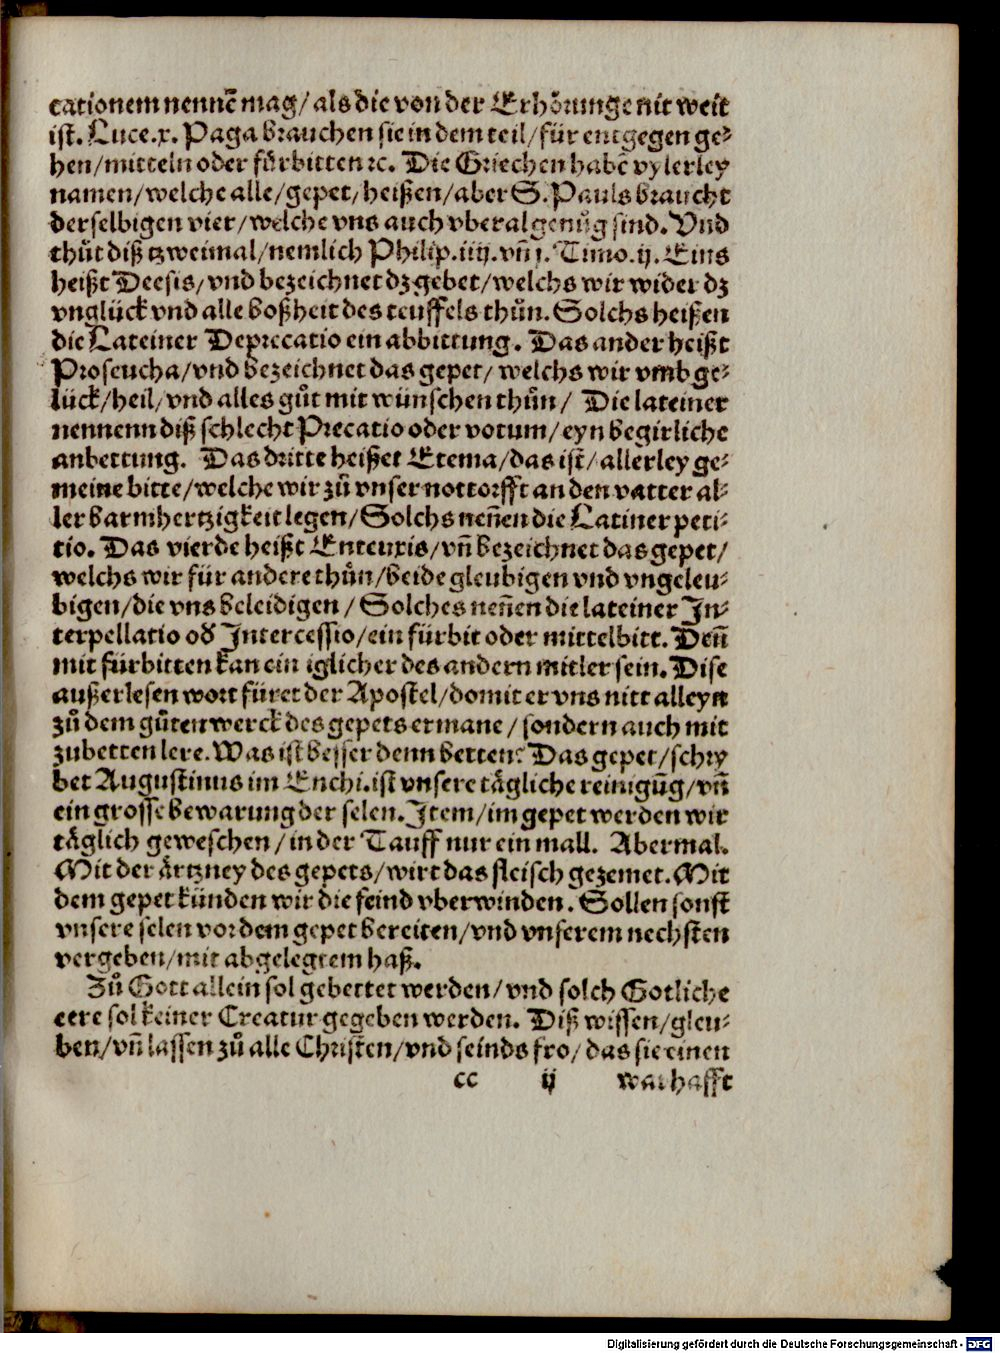 cationem nennẽ mag/ als die von der Erhörunge nit weit
ist. Luce.x. Paga brauchen sie in dem teil/ für entgegen ge⸗
hen/ mitteln oder fürbitten ꝛc. Die Griechen habẽ vylerley
namen/ welche alle/ gepet/ heißen/ aber S. Pauls braucht
derselbigen vier/ welche vns auch vberal genůg sind. Vnd
thůt diß tzweimal/ nemlich Philip.iiij. vñ j. Timo.ij. Eins
heißt Deesis/ vnd bezeichnet dz gebet/ welchs wir wider dz
vnglück vnd alle boßheit des teuffels thůn. Solchs heißen
die Lateiner Deprecatio ein abbittung. Das ander heißt
Proseucha/ vnd bezeichnet das gepet/ welchs wir vmb ge⸗
lück/ heil/ vnd alles gůt mit wünschen thůn/ Die lateiner
nennenn diß schlecht Precatio oder votum/ eyn begirliche
anbettung. Das dritte heißet Etema/ das ist/ allerley ge⸗
meine bitte/ welche wir zů vnser nottorfft an den vatter al⸗
ler barmhertzigkeit legen/ Solchs neñen die Latiner peti⸗
tio. Das vierde heißt Enteuxis/ vñ bezeichnet das gepet/
welchs wir für andere thůn/ beide gleubigen vnd vngeleu⸗
bigen/ die vns beleidigen/ Solches neñen die lateiner In⸗
terpellatio oď Intercessio/ ein fürbit oder mittelbitt. Deñ
mit fürbitten kan ein iglicher des andern mitler sein. Dise
außerlesen wort füret der Apostel/ domit er vns nitt alleyn
zů dem gůten werck des gepets ermane/ sondern auch mit
zubetten lere. Was ist besser denn betten? Das gepet/ schry
bet Augustinus im Enchi. ist vnsere tägliche reinigũg/ vñ
ein grosse bewarung der selen. Item/ im gepet werden wir
täglich geweschen/ in der Tauff nur ein mall. Abermal.
Mit der ärtzney des gepets/ wirt das fleisch gezemet. Mit
dem gepet künden wir die feind vberwinden. Sollen sonst
vnsere selen vor dem gepet bereiten/ vnd vnserem nechsten
vergeben/ mit abgelegtem haß.
Zů Gott allein sol gebettet werden/ vnd solch Gotliche
eere sol keiner Creatur gegeben werden. Diß wissen/ gleu⸗
ben/ vñ lassen zů alle Christen/ vnd seinds fro/ das sie einen
cc ij warhafft
Digitalisierung gefördert durch die Deutsche Forschungsgemeinschaft - DFG